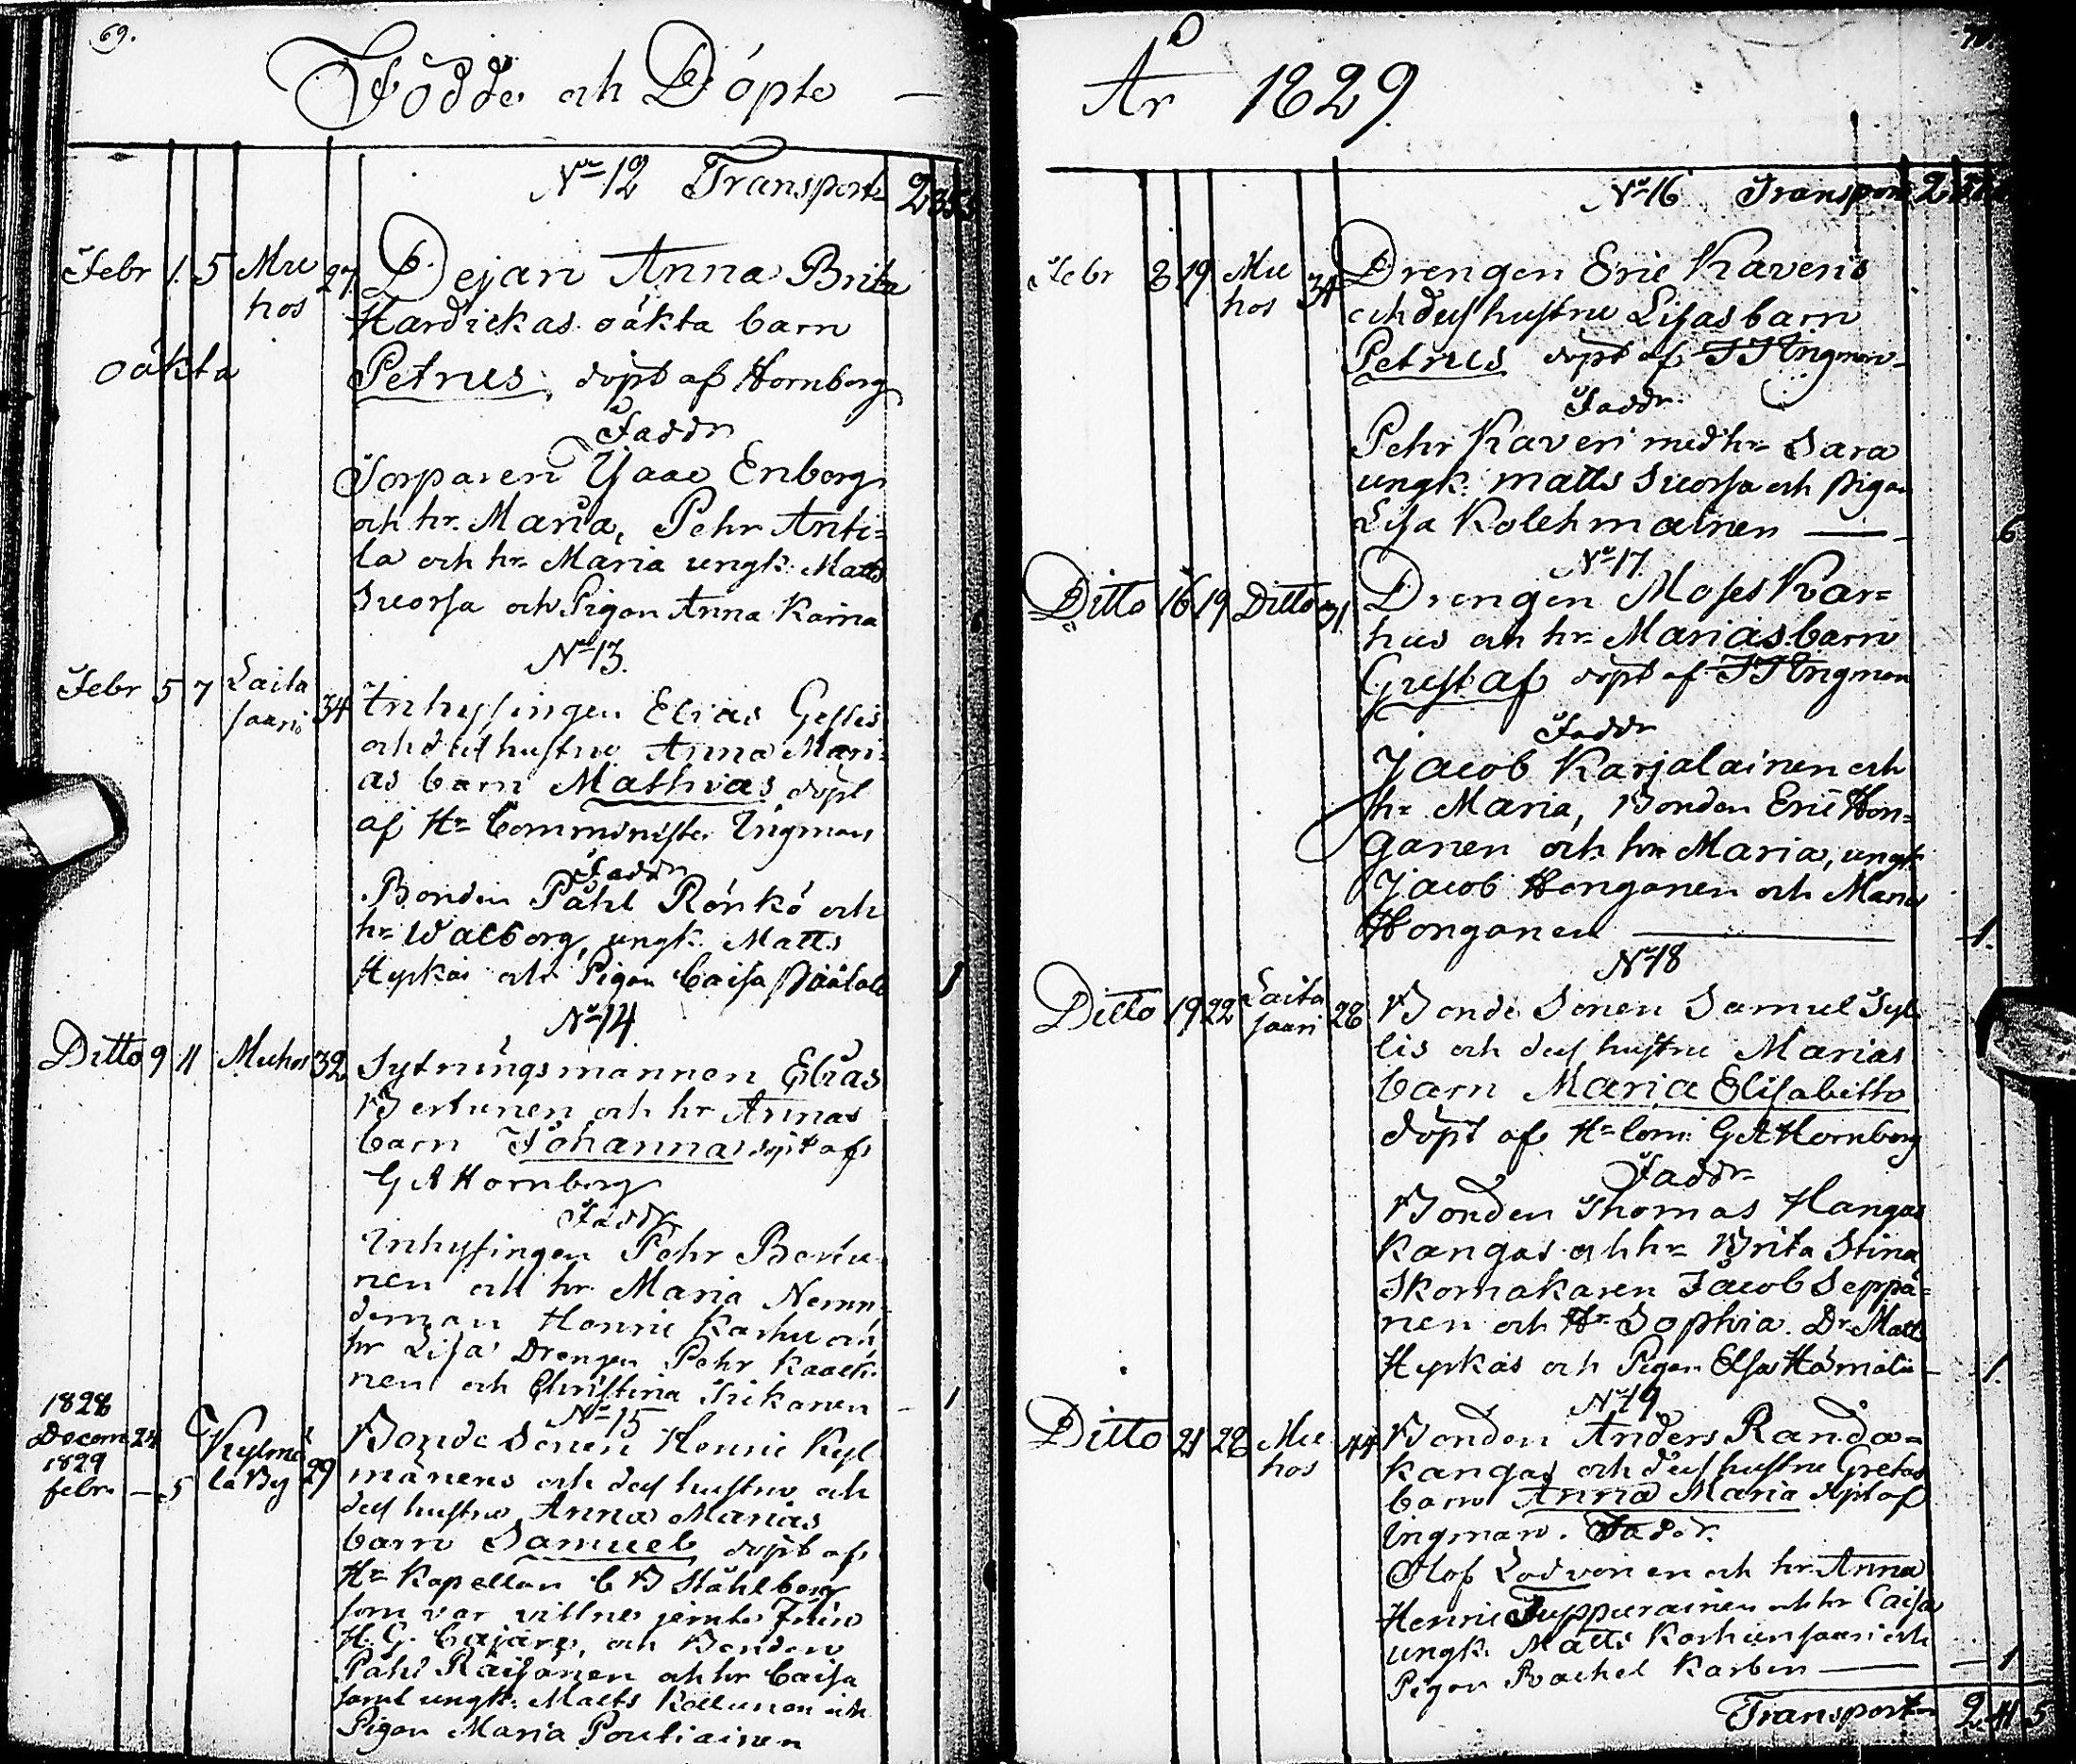 69.
Födde och Döpte
No 12 Transport 2
Febr 1. 5 Mu 27 Dejan Anna Brita
hos
Hardickas oäkta barn
oäkta
Petrus döpt af Hornborg
Faddr
Torparen Isaac Enberg
och hr. Maria, Pehr Antti-
la och hr. Maria ungk: Matts
Suorsa och Pigan Anna Kaina
No 13.
Febr 5 7 Laita 34 Inhysingen Elias
saari
och dess hustru Anna Mari-
as barn Mathias döpt
af Hr Comminister Ingman
Faddr
Bonden Påhl Rönkö och
hr Walborg, ungk. Matts
Hyrkäs och Pigan Caisa 1
No 14.
Ditto 9 11 Muhos 32 Sytningsmannen Elias
Bertunen och hr Annas
barn Johanna döpt af
G A Hornborg
Faddr
Inhysingen Pehr Bertu
nen och hr Maria Nemn
deman Henric Karhu och
hr Lisa Drengen Pehr
nen och Christina Tikanen 1
No 15
1828
Decem 24
1829
febr. 5
Kylmä
lä By 29
Bonde Sonen Henric Kyl
mänens och dess hustru och
dess hustru Anna Marias
barn Samuel döpt af
Hr Kapellan C B Ståhlberg
som var vittne jemte
H. G. Cajare, och Bonden
Påhl Räisänen och hr Caisa
samt ungk: Matts och
Pigan Maria Pouliainen
År 1829.
No 16 Transport 2
Febr 8 19 Mu 34 Drengen Eric Kaveris
hos
och dess hustru Lisas barn
Petrus döpt af J J Ingman
Faddr
Pehr Kaveri med hr Sara
ungk: Matts Suorsa och Pigan
Lisa Kolehmainen 6
No 17.
Ditto 16 19 Ditto 31 Drengen Moses Kar-
hus och hr Marias barn
Gustaf döpt af J J Ingman
Faddr
Jacob Karjalainen och
hr Maria, Bonden Eric Hon-
ganen och hr Maria, ungk
Jacob Honganen och Maria
Honganen 1.
No 18
Ditto 19 22 Laita 28 Bonde Sonen Samuel Tyl
saari
lis och dess hustru Marias
barn Maria Elisabetha
döpt af Hr Com: G A Hornborg
Faddr
Bonden Thomas Hangas
Kangas och hr Brita Stina
Skomakaren Jacob Seppä-
nen och Hr Sophia. Dr Matts
Hyrkäs och Pigan Elsa 1.
No 19
Ditto 21 28 Mu 44 Bonden Anders Randa-
hos
kangas och dess hustru Gretas
barn Anna Maria döpt af
Ingman. Faddr.
Olof Lodvonen och hr Anna
Henric Tuppurainen och hr Caisa
ungk. Matts Karhunsaari och
Pigan Rachel Karbin 1
Transport 2.41.5